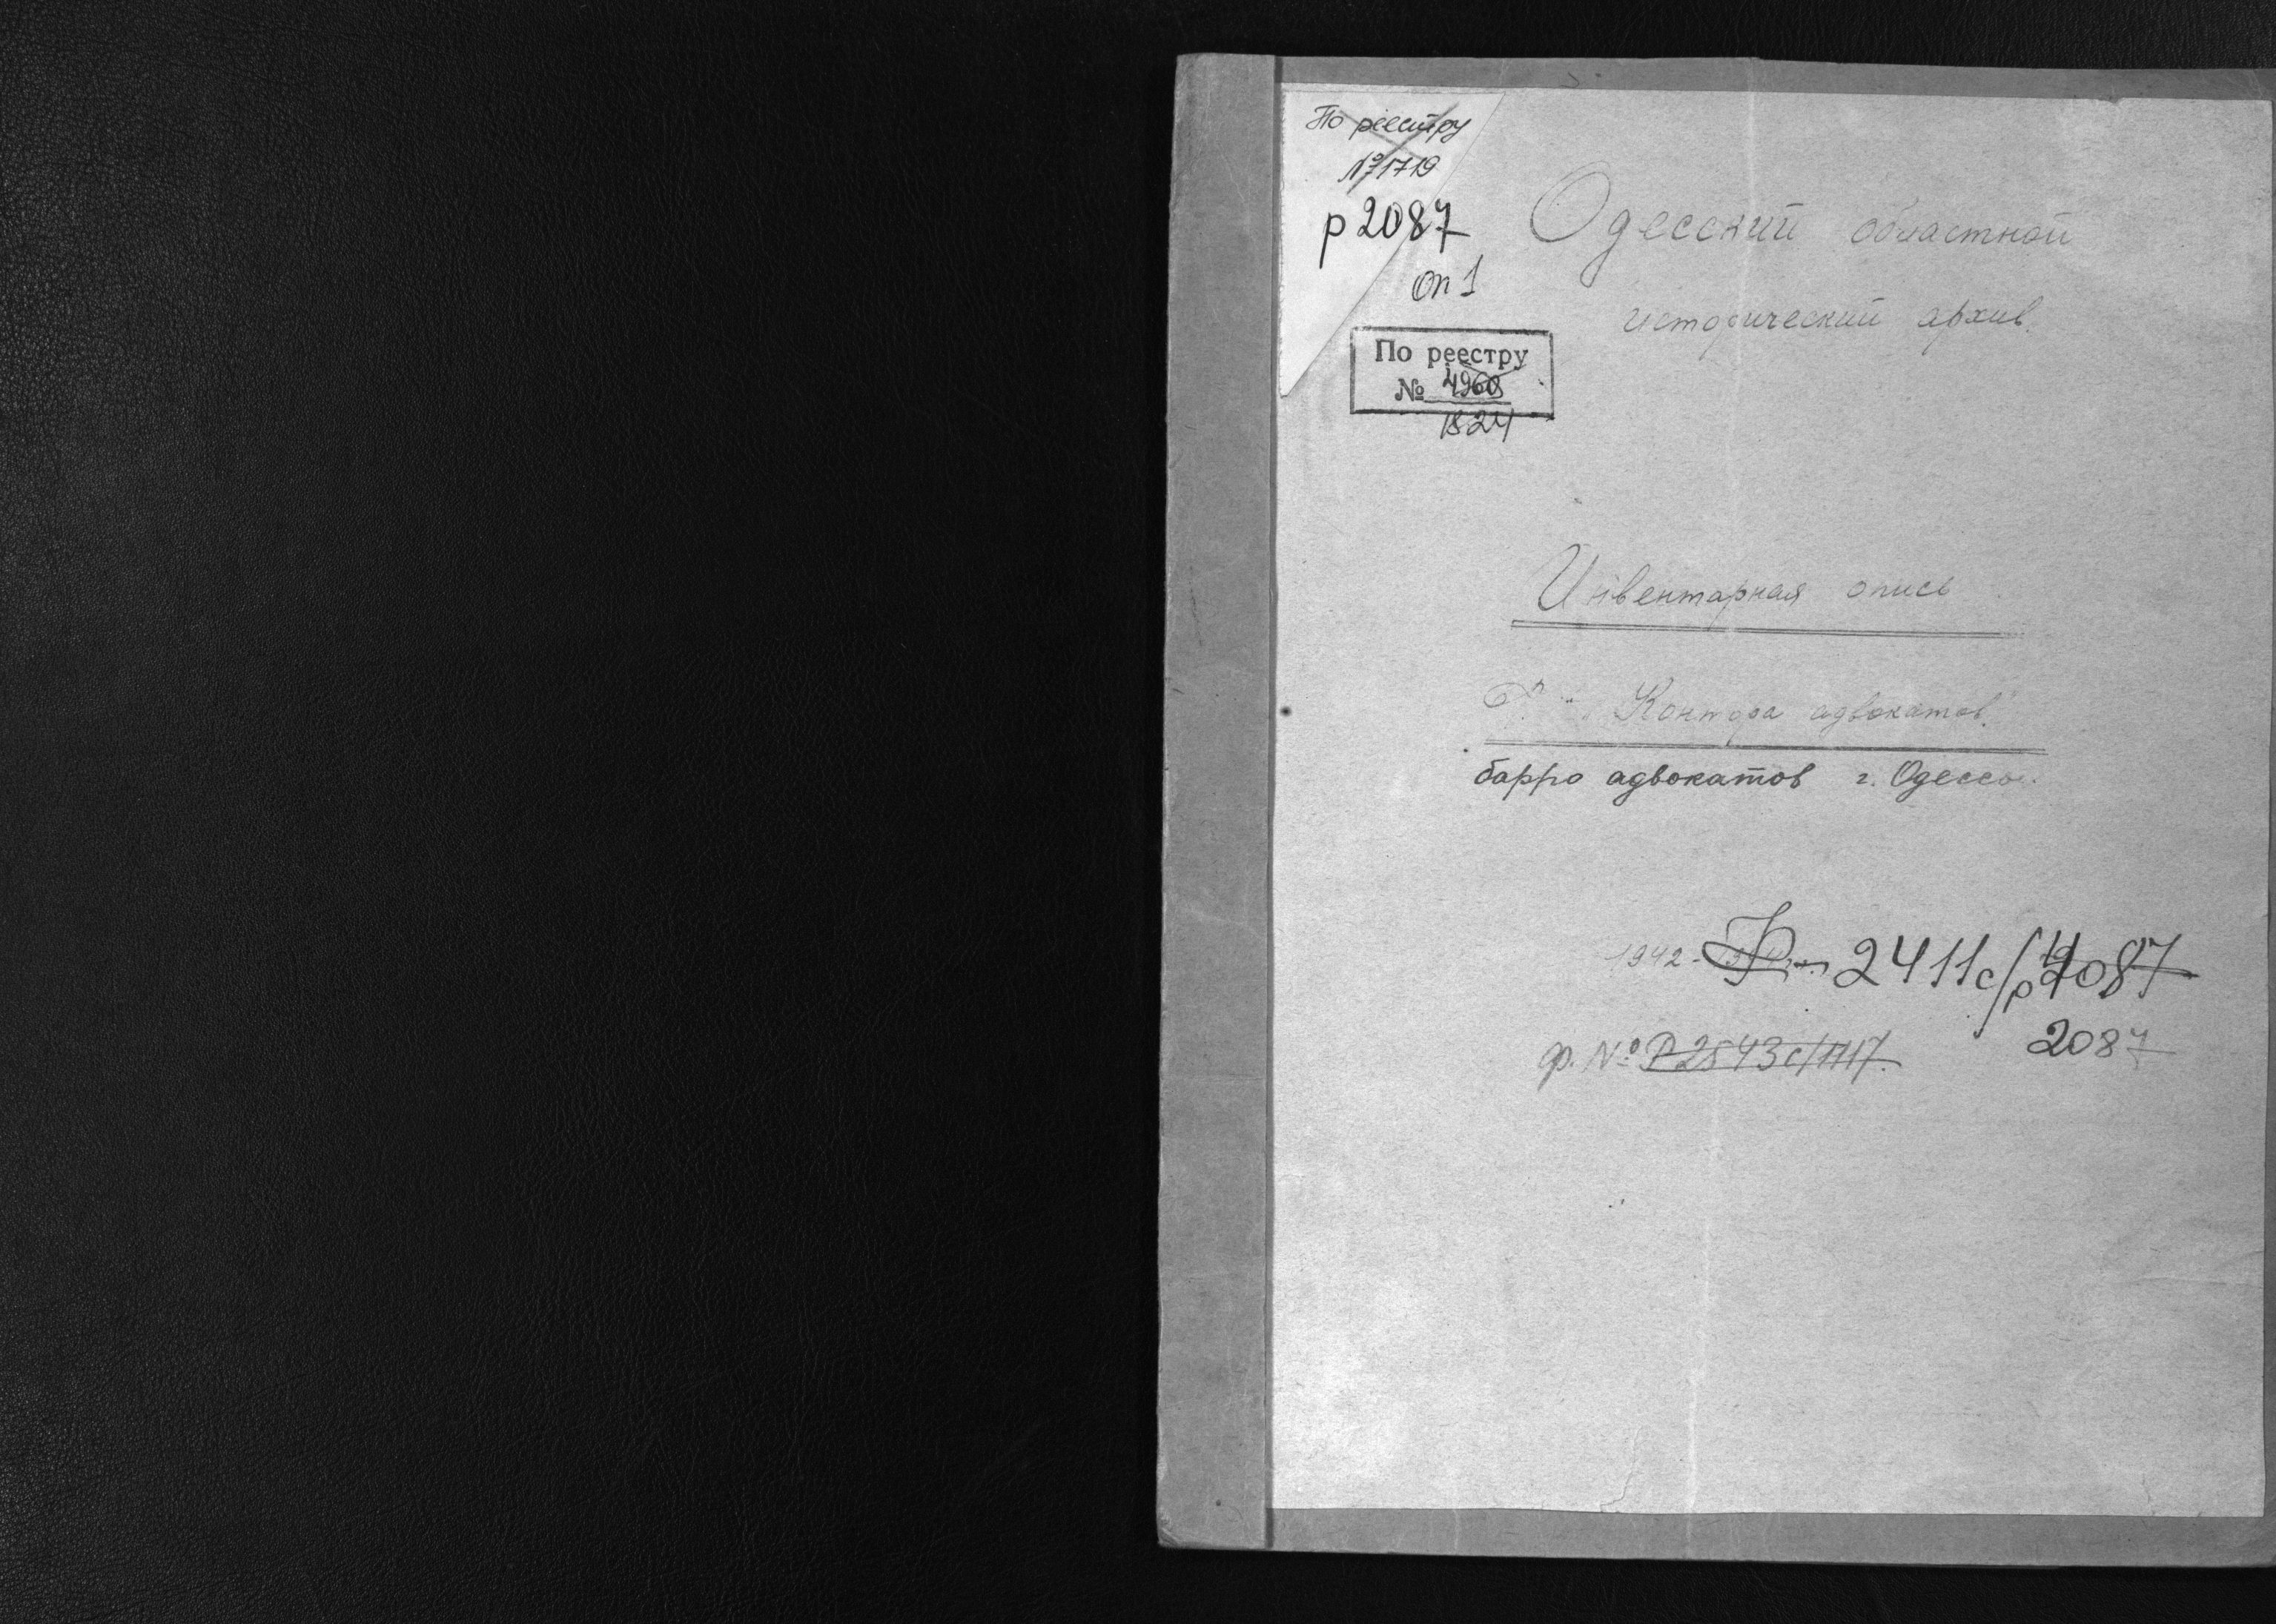 По реестру
№ 1719
р 2087
оп 1
По реестру
№ 4960
1824
Одесский областной
исторический архив.
Инвентарная опись
Ф. "Контора адвокатов."
барро адвокатов г. Одессы.
1942 - 2411с/р 2087
ф. № Р-2543с/1717.
2087